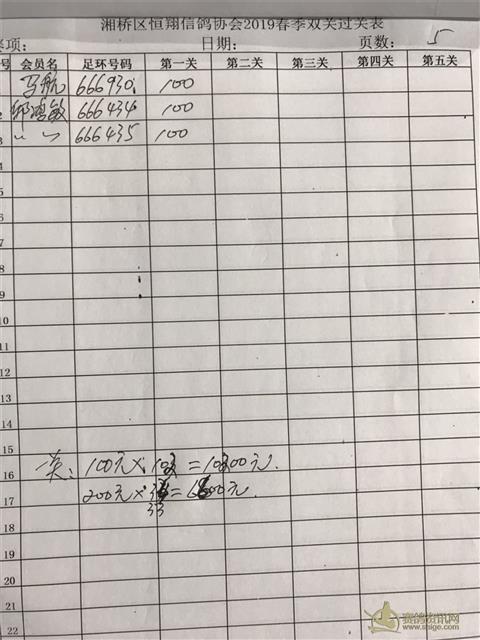 湘桥区恒翔信鸽协会2019春季双关过关表
项: 日期: 页数: 5
号 会员名 足环号码 第一关 第二关 第三关 第四关 第五关
马航 666930 100
2 邱鸿敏 666434 100
3 〃 〃 666435 100
4
5
6
7
8
9
10
11
12
13
14
15
16 100元× =10300元.
17 200元× =6600元.
33
18
19
20
21
22
赛鸽资讯网
www.shige.com